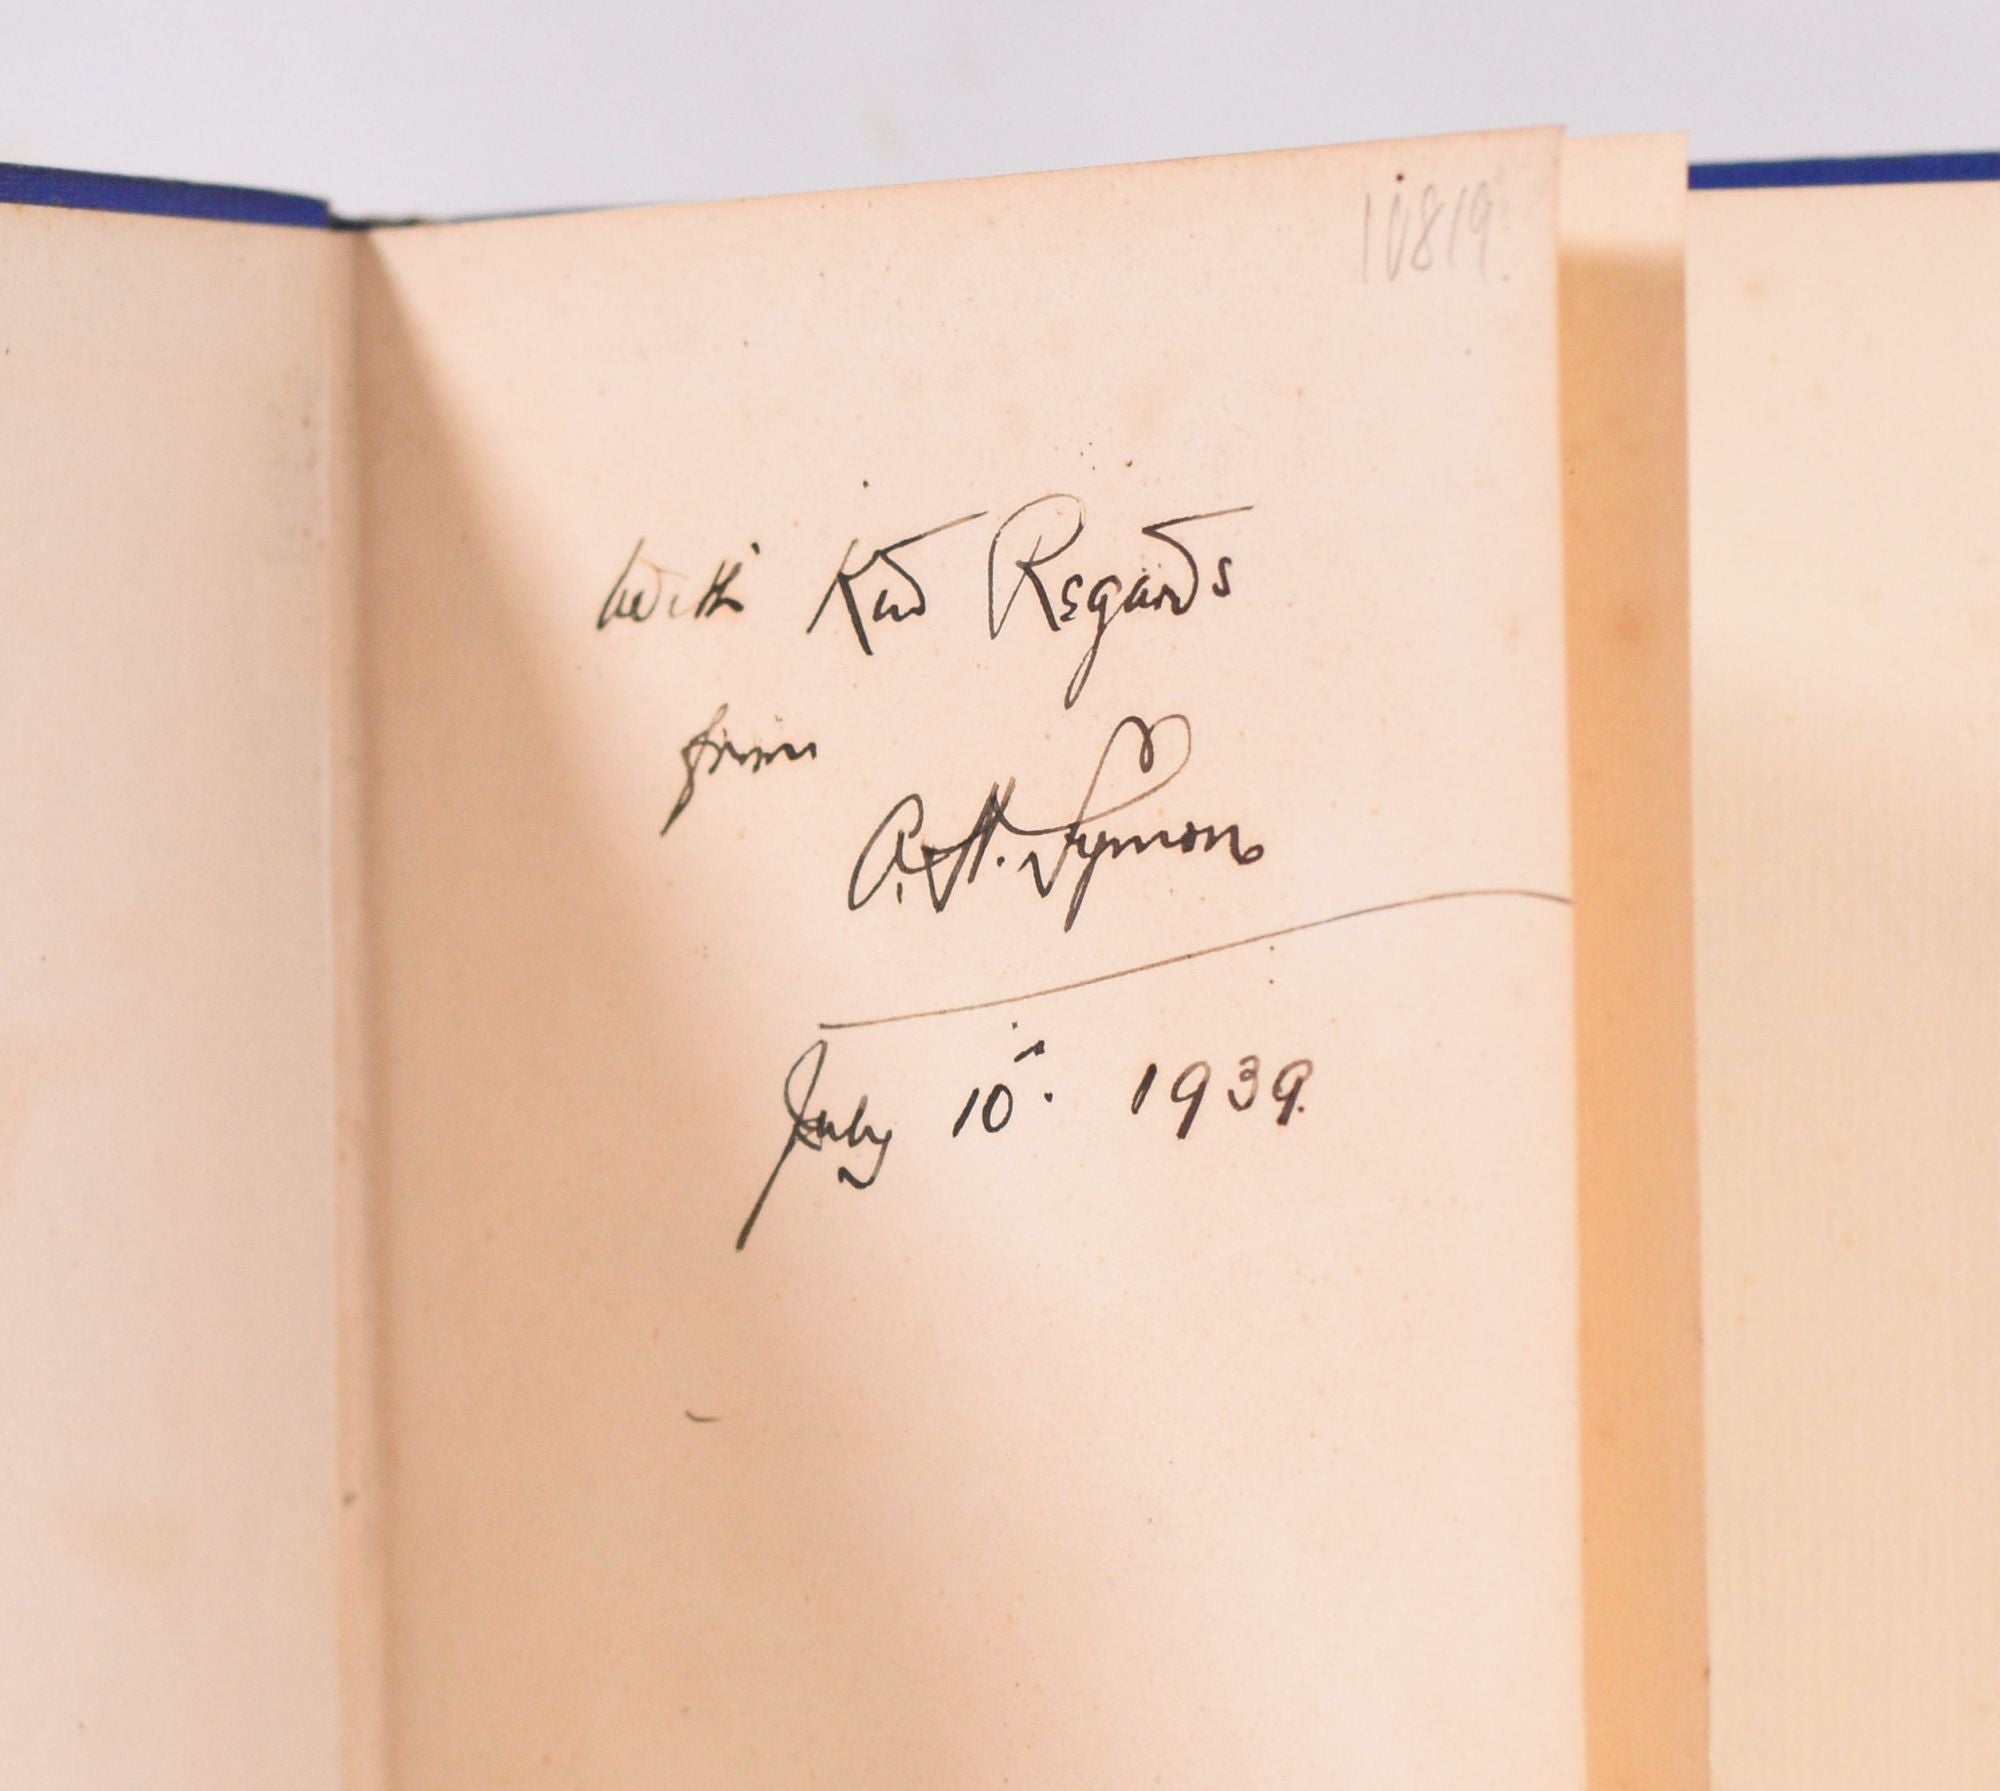 10819.
With Kind Regards
from
A. H. Symons
July 10th. 1939.